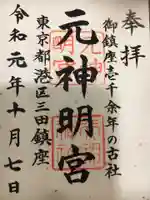 奉拝
御鎮座壱千余年の古社
元神明宮
東京都港区三田鎮座
令和元年十月七日